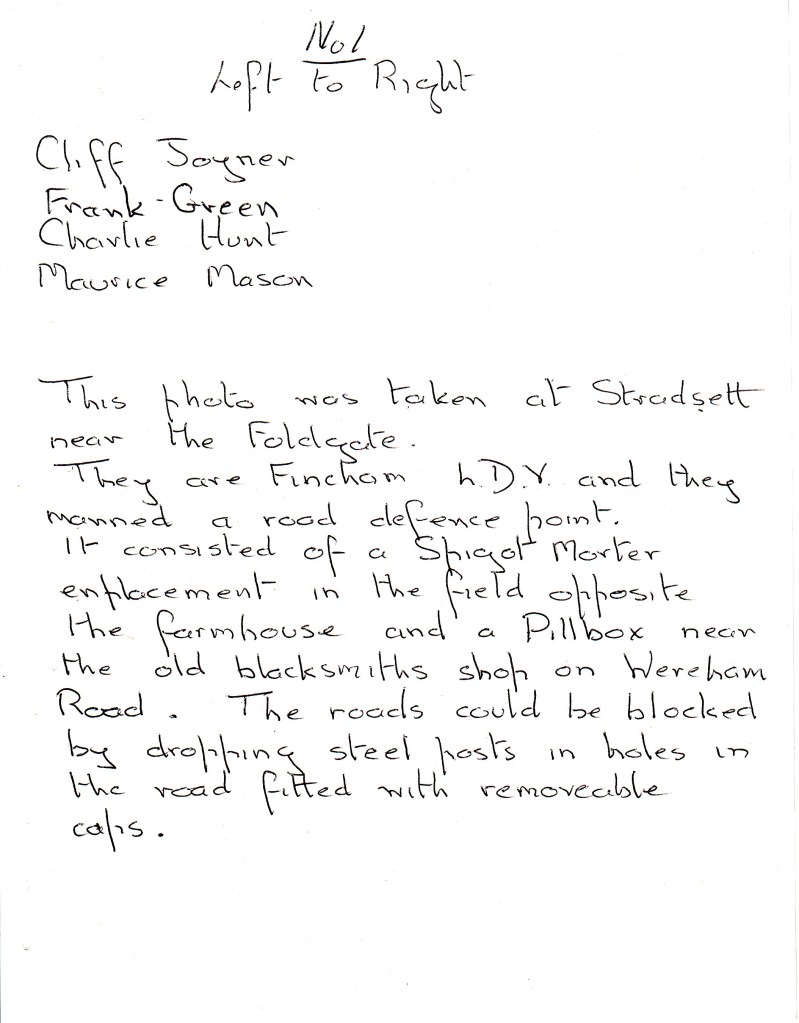 No1
Left to Right
Cliff Joyner
Frank Green
Charlie Hunt
Maurice Mason
This photo was taken at Stradsett
near the Foldgate.
They are Fincham L.D.V. and they
manned a road defence point.
It consisted of a Spigot Morter
enplacement in the field opposite
the farmhouse and a Pillbox near
the old blacksmiths shop on Wereham
Road. The roads could be blocked
by dropping steel posts in holes in
the road fitted with removeable
caps.